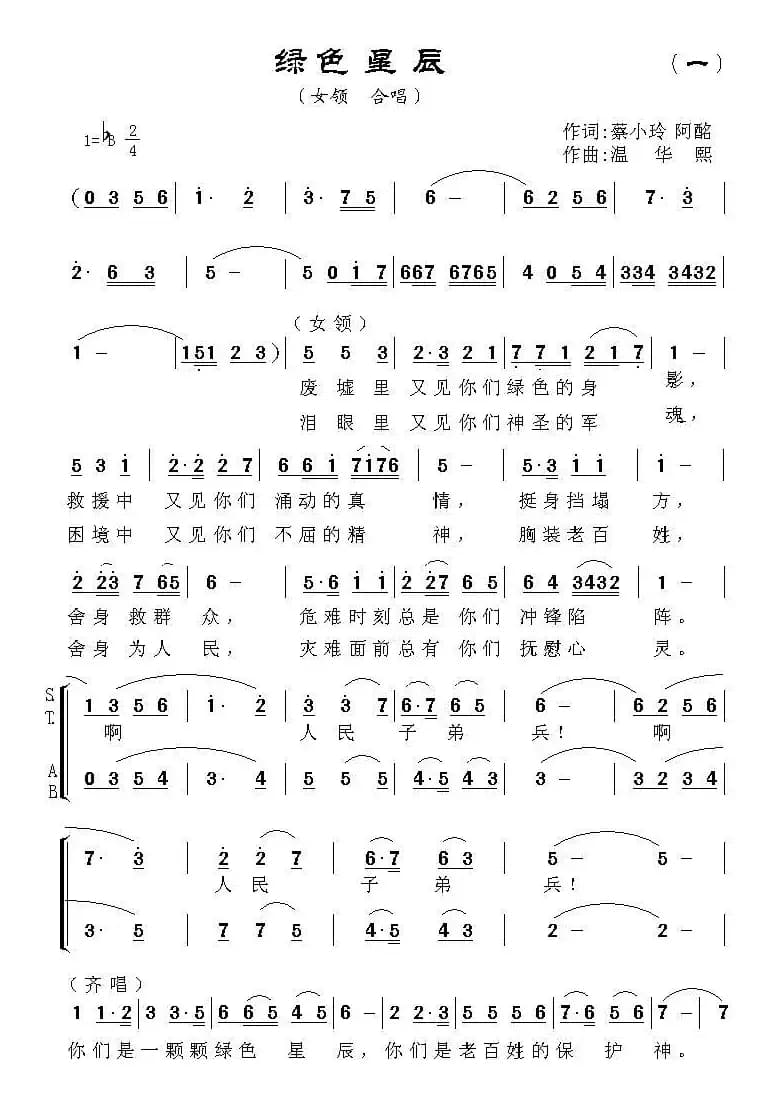 绿色星辰 (一)
(女领 合唱)
1=♭B 2/4
作词:蔡小玲 阿酩
作曲:温 华 熙
(0 3 5 6 | 1· 2 | 3· 7 5 | 6 - | 6 2 5 6 | 7· 3 |
2· 6 3 | 5 - | 5 0 1 7 | 667 6765 | 4 0 5 4 | 334 3432 |
(女领)
1 - | 151 2 3) | 5 5 3 | 2·3 2 1 | 7 7 1 2 1 7 | 1 - |
废 墟 里 又见你们绿色的身 影,
泪 眼 里 又见你们神圣的军 魂,
5 3 1 | 2·2 2 7 | 6 6 1 7176 | 5 - | 5·3 1 1 |
救援中 又见你们 涌动的真 情, 挺身挡塌 方,
困境中 又见你们 不屈的精 神, 胸装老百 姓,
2 23 7 65 | 6 - | 5·6 1 1 | 2 27 6 5 | 6 4 3432 | 1 - |
舍身 救群 众, 危难时刻总是 你们 冲锋陷 阵。
舍身 为人 民, 灾难面前总有 你们 抚慰心 灵。
S. T. 1 3 5 6 | 1· 2 | 3 3 7 | 6·7 6 5 | 6 - | 6 2 5 6 |
啊 人 民 子 弟 兵! 啊
A B 0 3 5 4 | 3· 4 | 5 5 5 | 4·5 4 3 | 3 - | 3 2 3 4 |
7· 3 | 2 2 7 | 6·7 6 3 | 5 - | 5 - |
人 民 子 弟 兵!
3· 5 | 7 7 5 | 4·5 4 3 | 2 - | 2 - |
(齐唱)
1 1·2 | 3 3·5 | 6 6 5 | 4 5 | 6 - | 2 2·3 | 5 5 5 6 | 7·6 5 6 | 7 - | 7
你们是一颗颗绿色 星 辰,你们是老百姓的保 护 神。